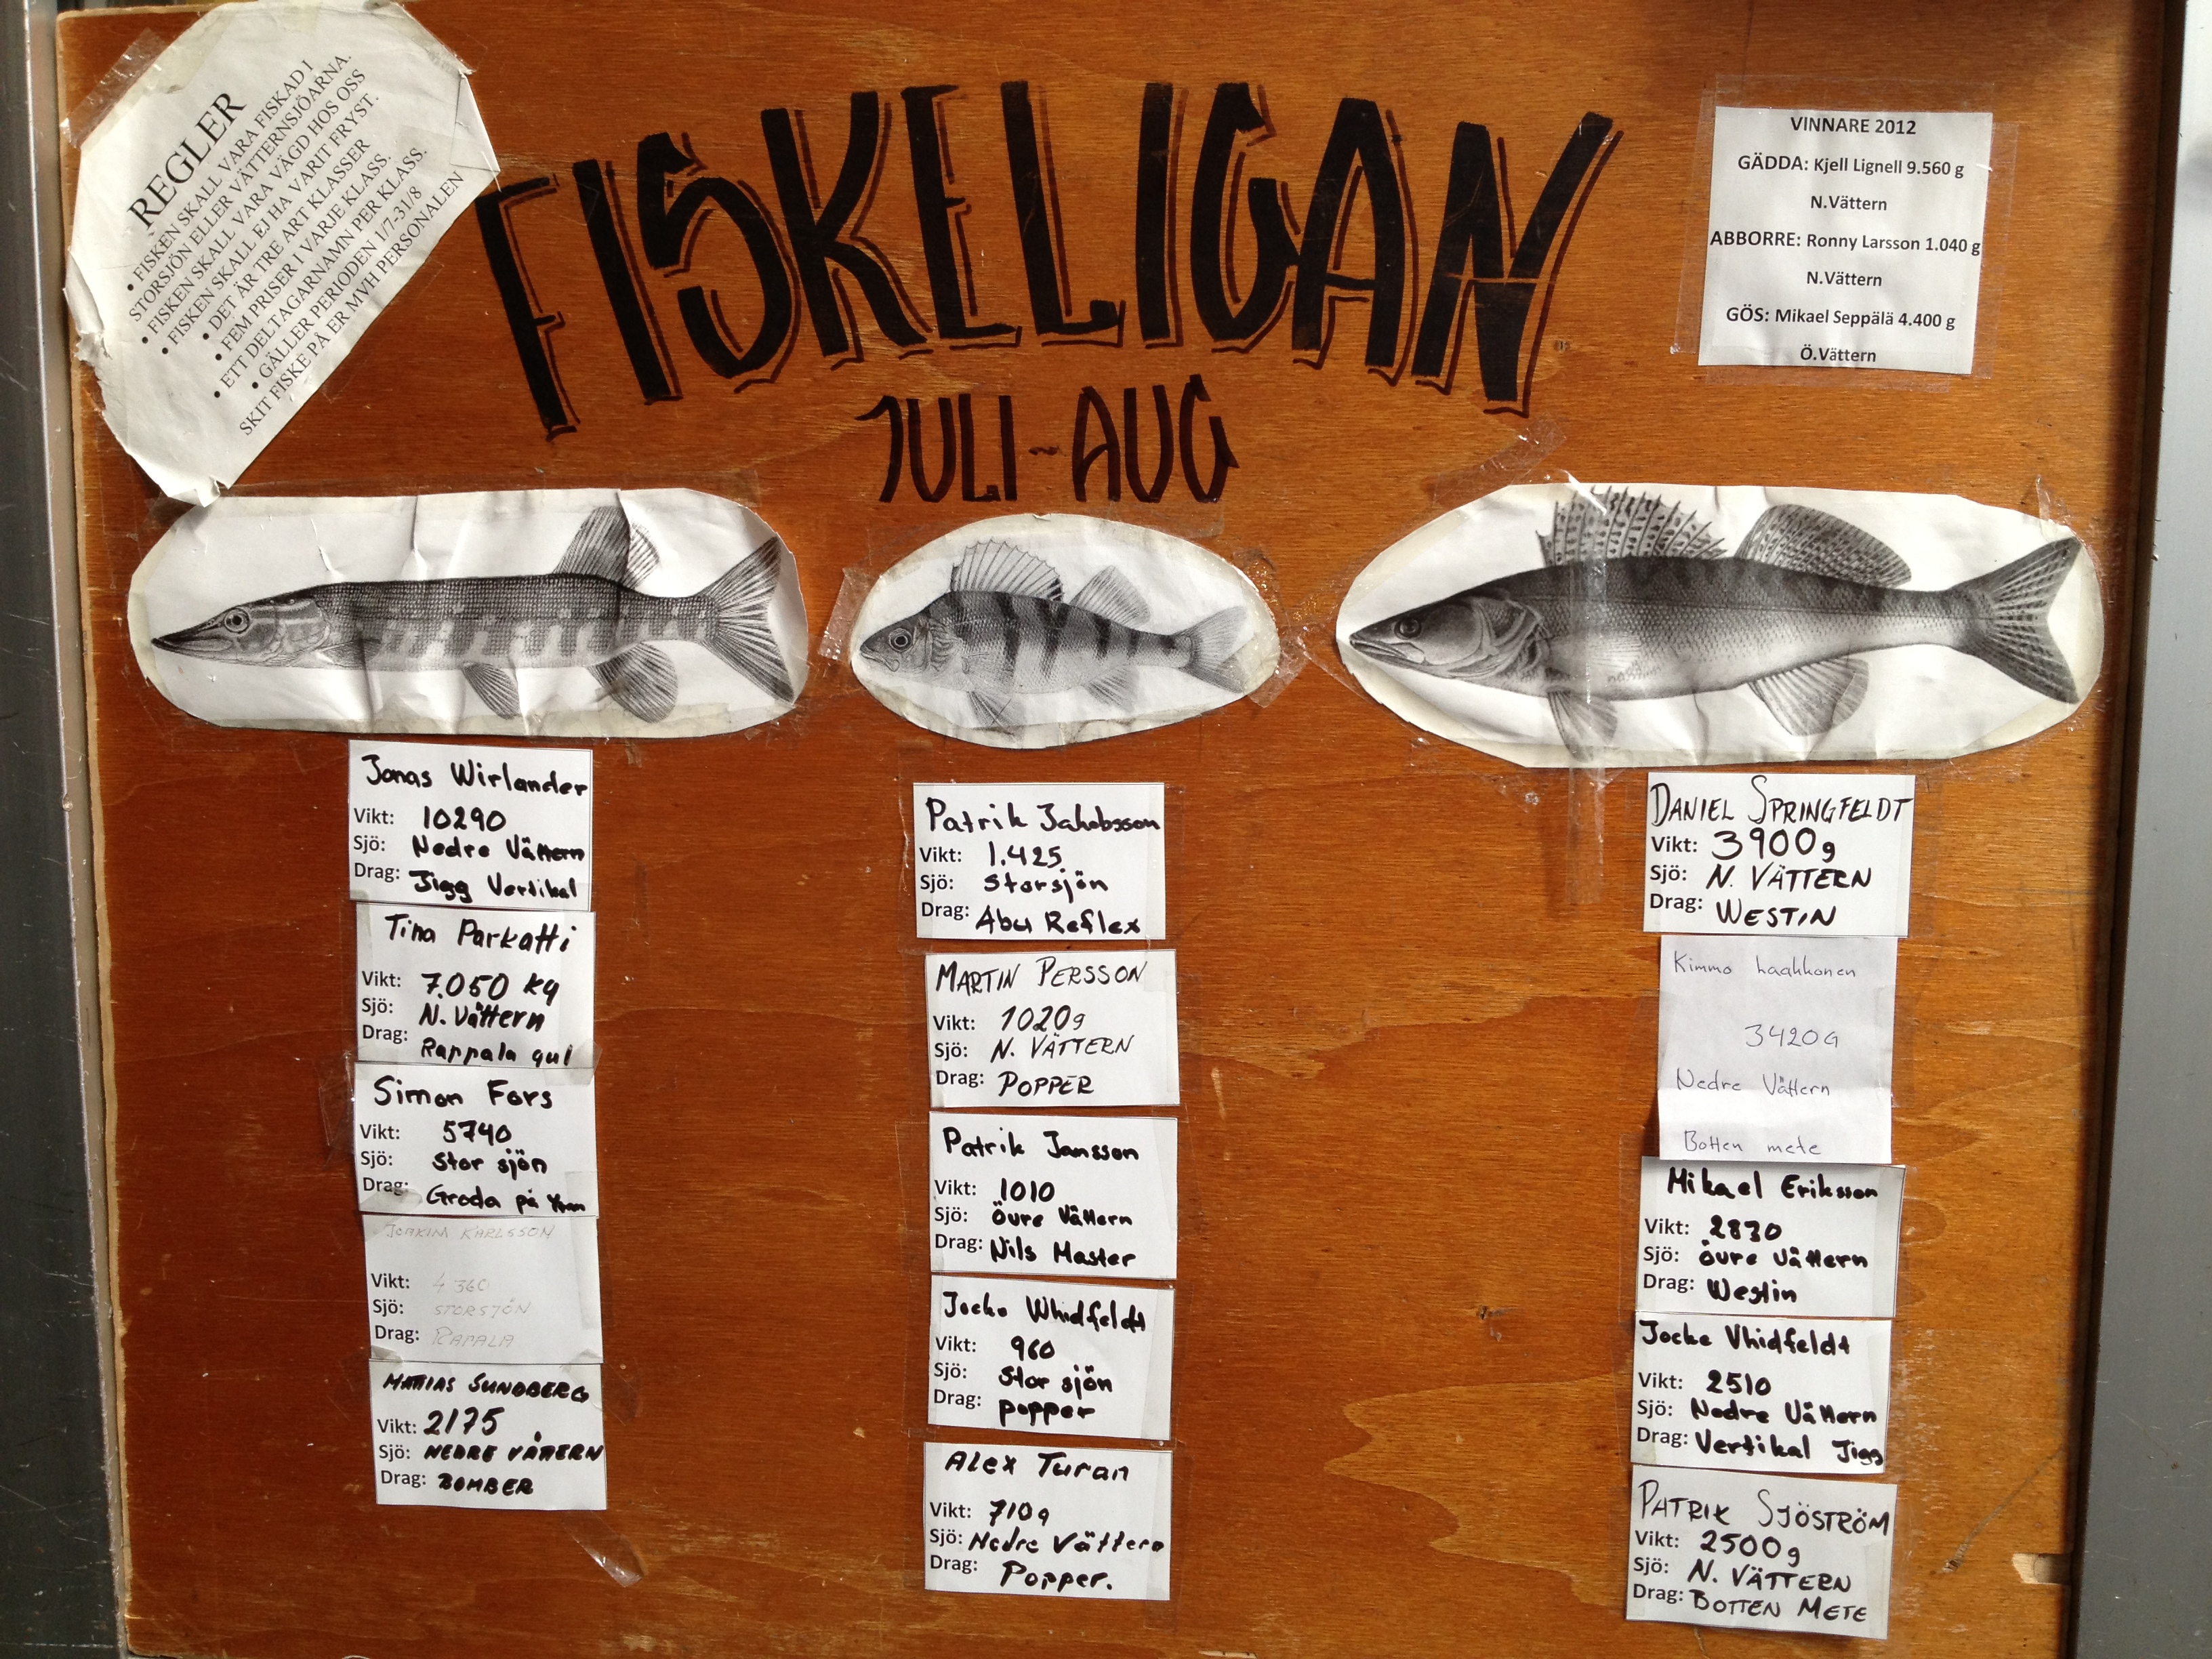 REGLER
• FISKEN SKALL VARA FISKAD I
STORSJÖN ELLER VÄTTERNSJÖARNA.
• FISKEN SKALL VARA VÄGD HOS OSS
• FISKEN SKALL EJ HA VARIT FRYST.
• DET ÄR TRE ART KLASSER
• FEM PRISER I VARJE KLASS.
• ETT DELTAGARNAMN PER KLASS.
• GÄLLER PERIODEN 1/7-31/8
SKIT FISKE PÅ ER MVH PERSONALEN
FISKELIGAN
JULI-AUG
VINNARE 2012
GÄDDA: Kjell Lignell 9.560 g
N.Vättern
ABBORRE: Ronny Larsson 1.040 g
N.Vättern
GÖS: Mikael Seppälä 4.400 g
Ö.Vättern
Jonas Wirlander
Vikt: 10290
Sjö: Nedre Vättern
Drag: Jigg Vertikal
Tina Parkatti
Vikt: 7.050 kg
Sjö: N. Vättern
Drag: Rappala gul
Simon Fors
Vikt: 5740
Sjö: Stor sjön
Drag: Groda på
JOAKIM KARLSSON
Vikt: 4360
Sjö: STORSJÖN
Drag: RAPALA
MATIAS SUNDBERG
Vikt: 2175
Sjö: NEDRE VÄTTERN
Drag: BOMBER
Patrik Jakobsson
Vikt: 1.425
Sjö: Storsjön
Drag: Abu Reflex
MARTIN PERSSON
Vikt: 1020g
Sjö: N. VÄTTERN
Drag: POPPER
Patrik Jansson
Vikt: 1010
Sjö: Övre Vättern
Drag: Nils Master
Jocke Whidfeldt
Vikt: 960
Sjö: Stor sjön
Drag: popper
Alex Turan
Vikt: 710g
Sjö: Nedre Vättern
Drag: Popper.
DANIEL SPRINGFELDT
Vikt: 3900g
Sjö: N. VÄTTERN
Drag: WESTIN
Kimmo haahkonen
3420G
Nedre Vättern
Botten mete
Mikael Eriksson
Vikt: 2830
Sjö: Övre Vättern
Drag: Westin
Jocke Vhidfeldt
Vikt: 2510
Sjö: Nedre Vättern
Drag: Vertikal Jigg
PATRIK SJÖSTRÖM
Vikt: 2500g
Sjö: N. VÄTTERN
Drag: BOTTEN METE